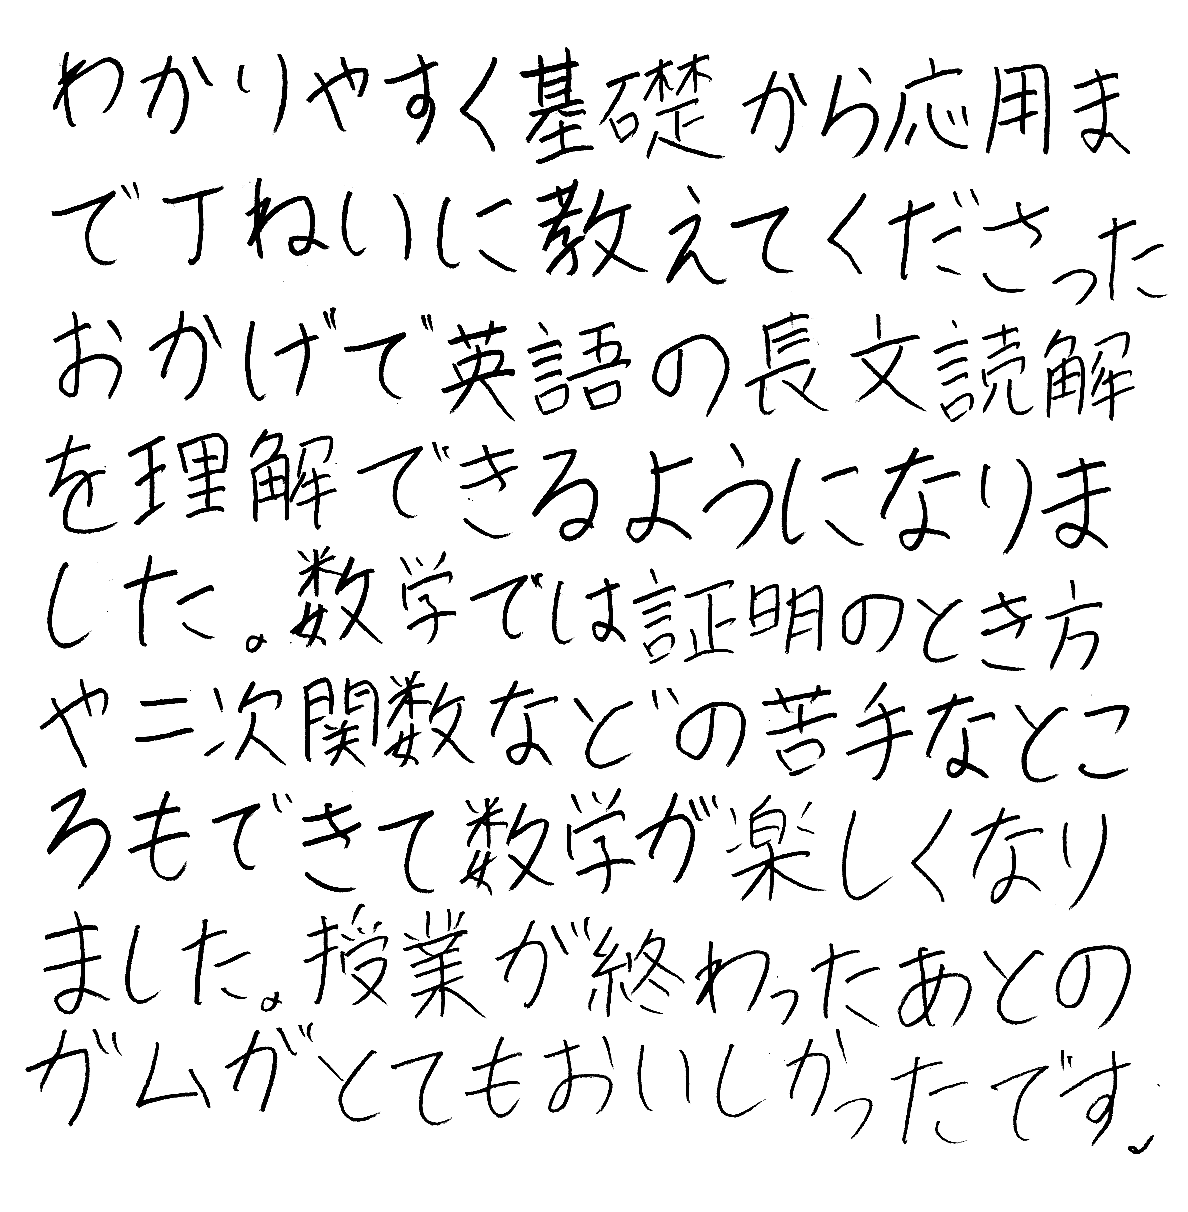 わかりやすく基礎から応用ま
で丁ねいに教えてくださった
おかげで英語の長文読解
を理解できるようになりま
した。数学では証明のとき方
や二次関数などの苦手なとこ
ろもできて数学が楽しくなり
ました。授業が終わったあとの
ガムがとてもおいしかったです。